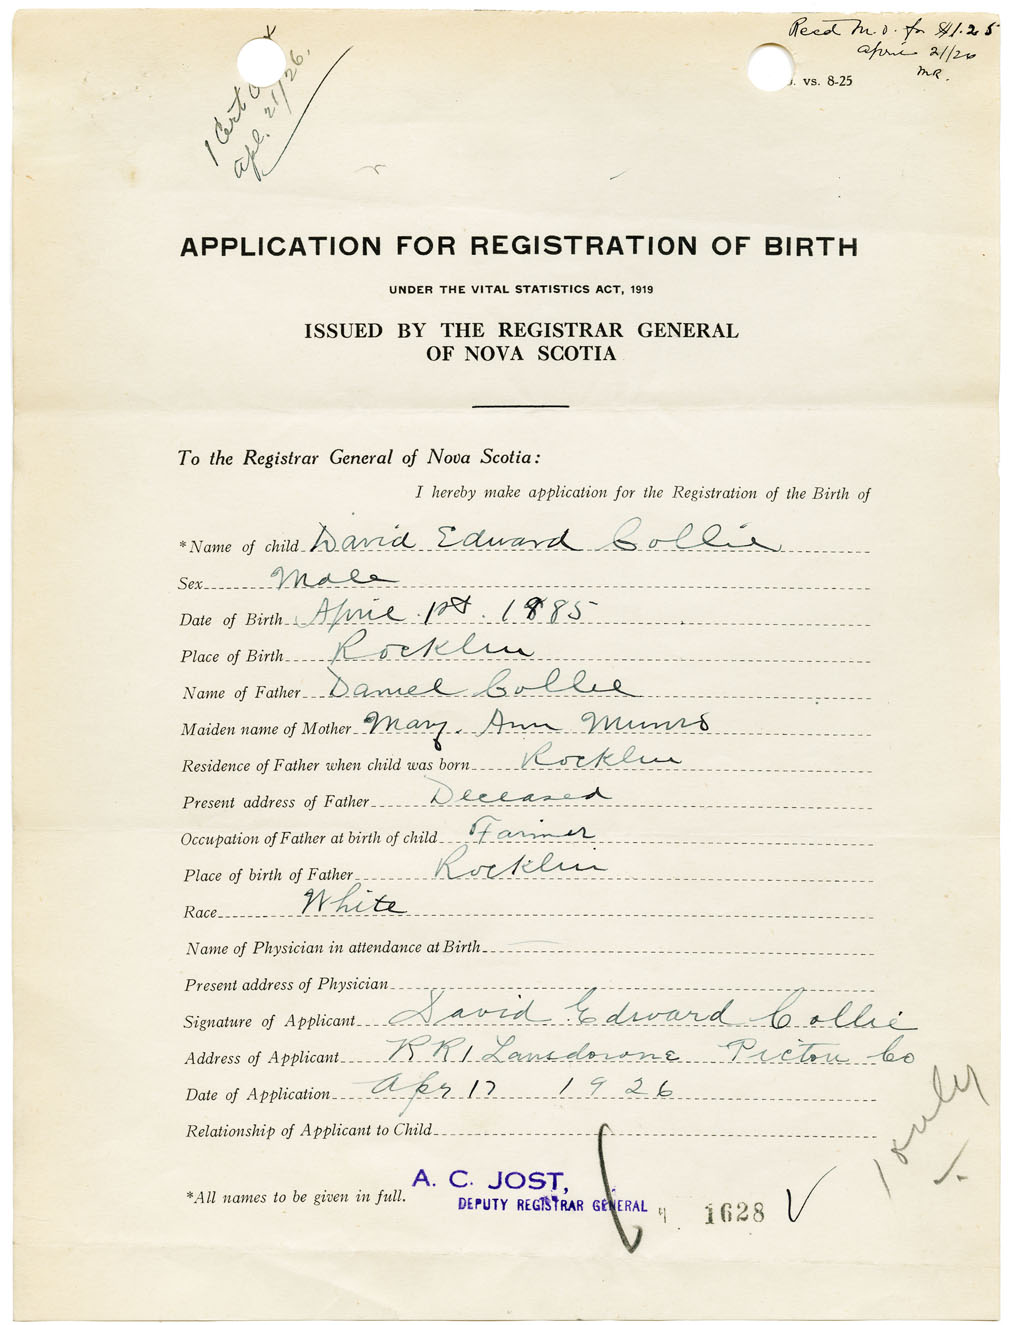 Recd M.O. for $1.25
April 21/26
MR.
vs. 8-25
1 Cert
Apl. 21/26.
APPLICATION FOR REGISTRATION OF BIRTH
UNDER THE VITAL STATISTICS ACT, 1919
ISSUED BY THE REGISTRAR GENERAL
OF NOVA SCOTIA
To the Registrar General of Nova Scotia:
I hereby make application for the Registration of the Birth of
*Name of child David Edward Collie
Sex Male
Date of Birth April 1st. 1885
Place of Birth Rocklin
Name of Father Daniel Collie
Maiden name of Mother Mary. Ann Munro
Residence of Father when child was born Rocklin
Present address of Father Deceased
Occupation of Father at birth of child Farmer
Place of birth of Father Rocklin
Race White
Name of Physician in attendance at Birth
Present address of Physician
Signature of Applicant David Edward Collie
Address of Applicant RR1 Lansdowne Pictou Co
Date of Application Apr 17 1926
Relationship of Applicant to Child
1 only
*All names to be given in full.
A. C. JOST,
DEPUTY REGISTRAR GENERAL
1628